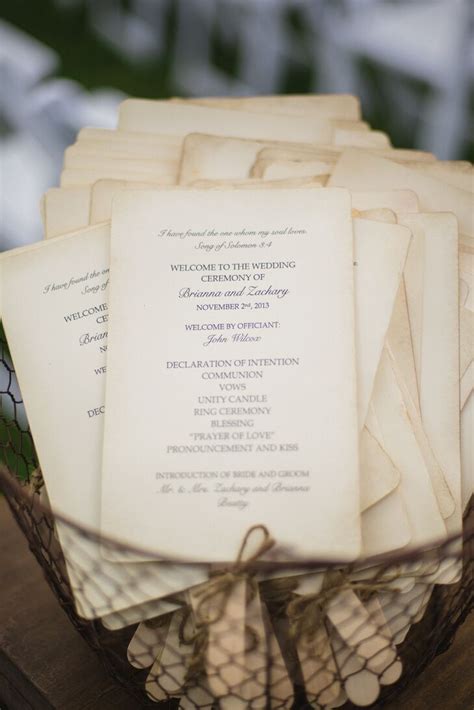 I have found the one whom my soul loves.
Song of Solomon 3:4
WELCOME TO THE WEDDING
CEREMONY OF
Brianna and Zachary
NOVEMBER 2nd, 2013
WELCOME BY OFFICIANT:
John Wilcox
DECLARATION OF INTENTION
COMMUNION
VOWS
UNITY CANDLE
RING CEREMONY
BLESSING
"PRAYER OF LOVE"
PRONOUNCEMENT AND KISS
INTRODUCTION OF BRIDE AND GROOM
Mr. & Mrs. Zachary and Brianna
Beatty.
I have found the
Song
WELCOME TO
CERE
Brianna
NOVEM
WELCOME
Joh
DECLARATI